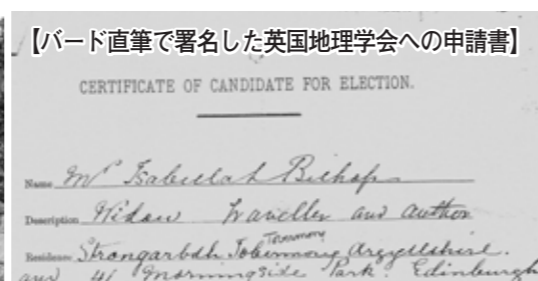 【バード直筆で署名した英国地理学会への申請書】
CERTIFICATE OF CANDIDATE FOR ELECTION.
Name Mrs Isabella L Bishop
Description Widow Traveller and Author
Tobermory
Residence Strongarbh. Argyllshire.
and 41 Morningside Park. Edinburgh